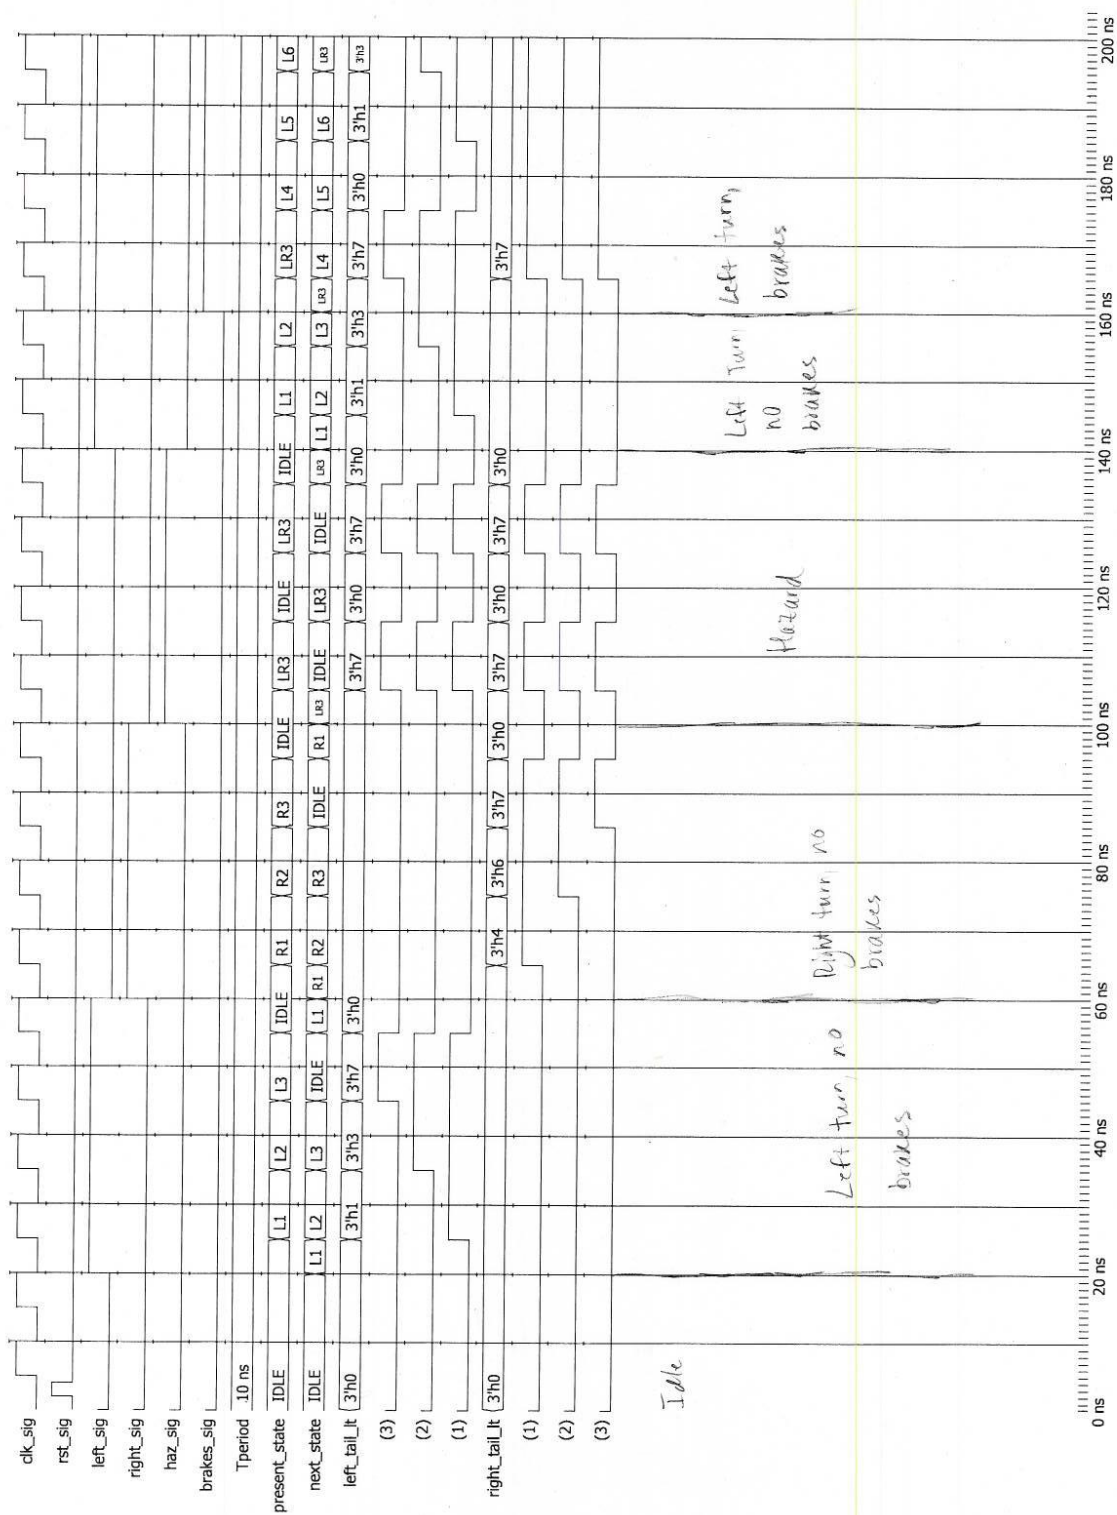 clk_sig
rst_sig
left_sig
right_sig
haz_sig
brakes_sig
Tperiod 10 ns
present_state IDLE L1 L2 L3 IDLE R1 R2 R3 IDLE LR3 IDLE LR3 IDLE L1 L2 LR3 L4 L5 L6
next_state IDLE L1 L2 L3 IDLE L1 R1 R2 R3 IDLE R1 LR3 IDLE LR3 IDLE LR3 L1 L2 L3 LR3 L4 L5 L6 LR3
left_tail_lt 3'h0 3'h1 3'h3 3'h7 3'h0 3'h7 3'h0 3'h7 3'h0 3'h1 3'h3 3'h7 3'h0 3'h1 3'h3
(3)
(2)
(1)
right_tail_lt 3'h0 3'h4 3'h6 3'h7 3'h0 3'h7 3'h0 3'h7 3'h0 3'h7
(1)
(2)
(3)
Idle
Left turn, no
brakes
Right turn, no
brakes
Hazard
Left Turn,
no
brakes
Left turn,
brakes
0 ns 20 ns 40 ns 60 ns 80 ns 100 ns 120 ns 140 ns 160 ns 180 ns 200 ns